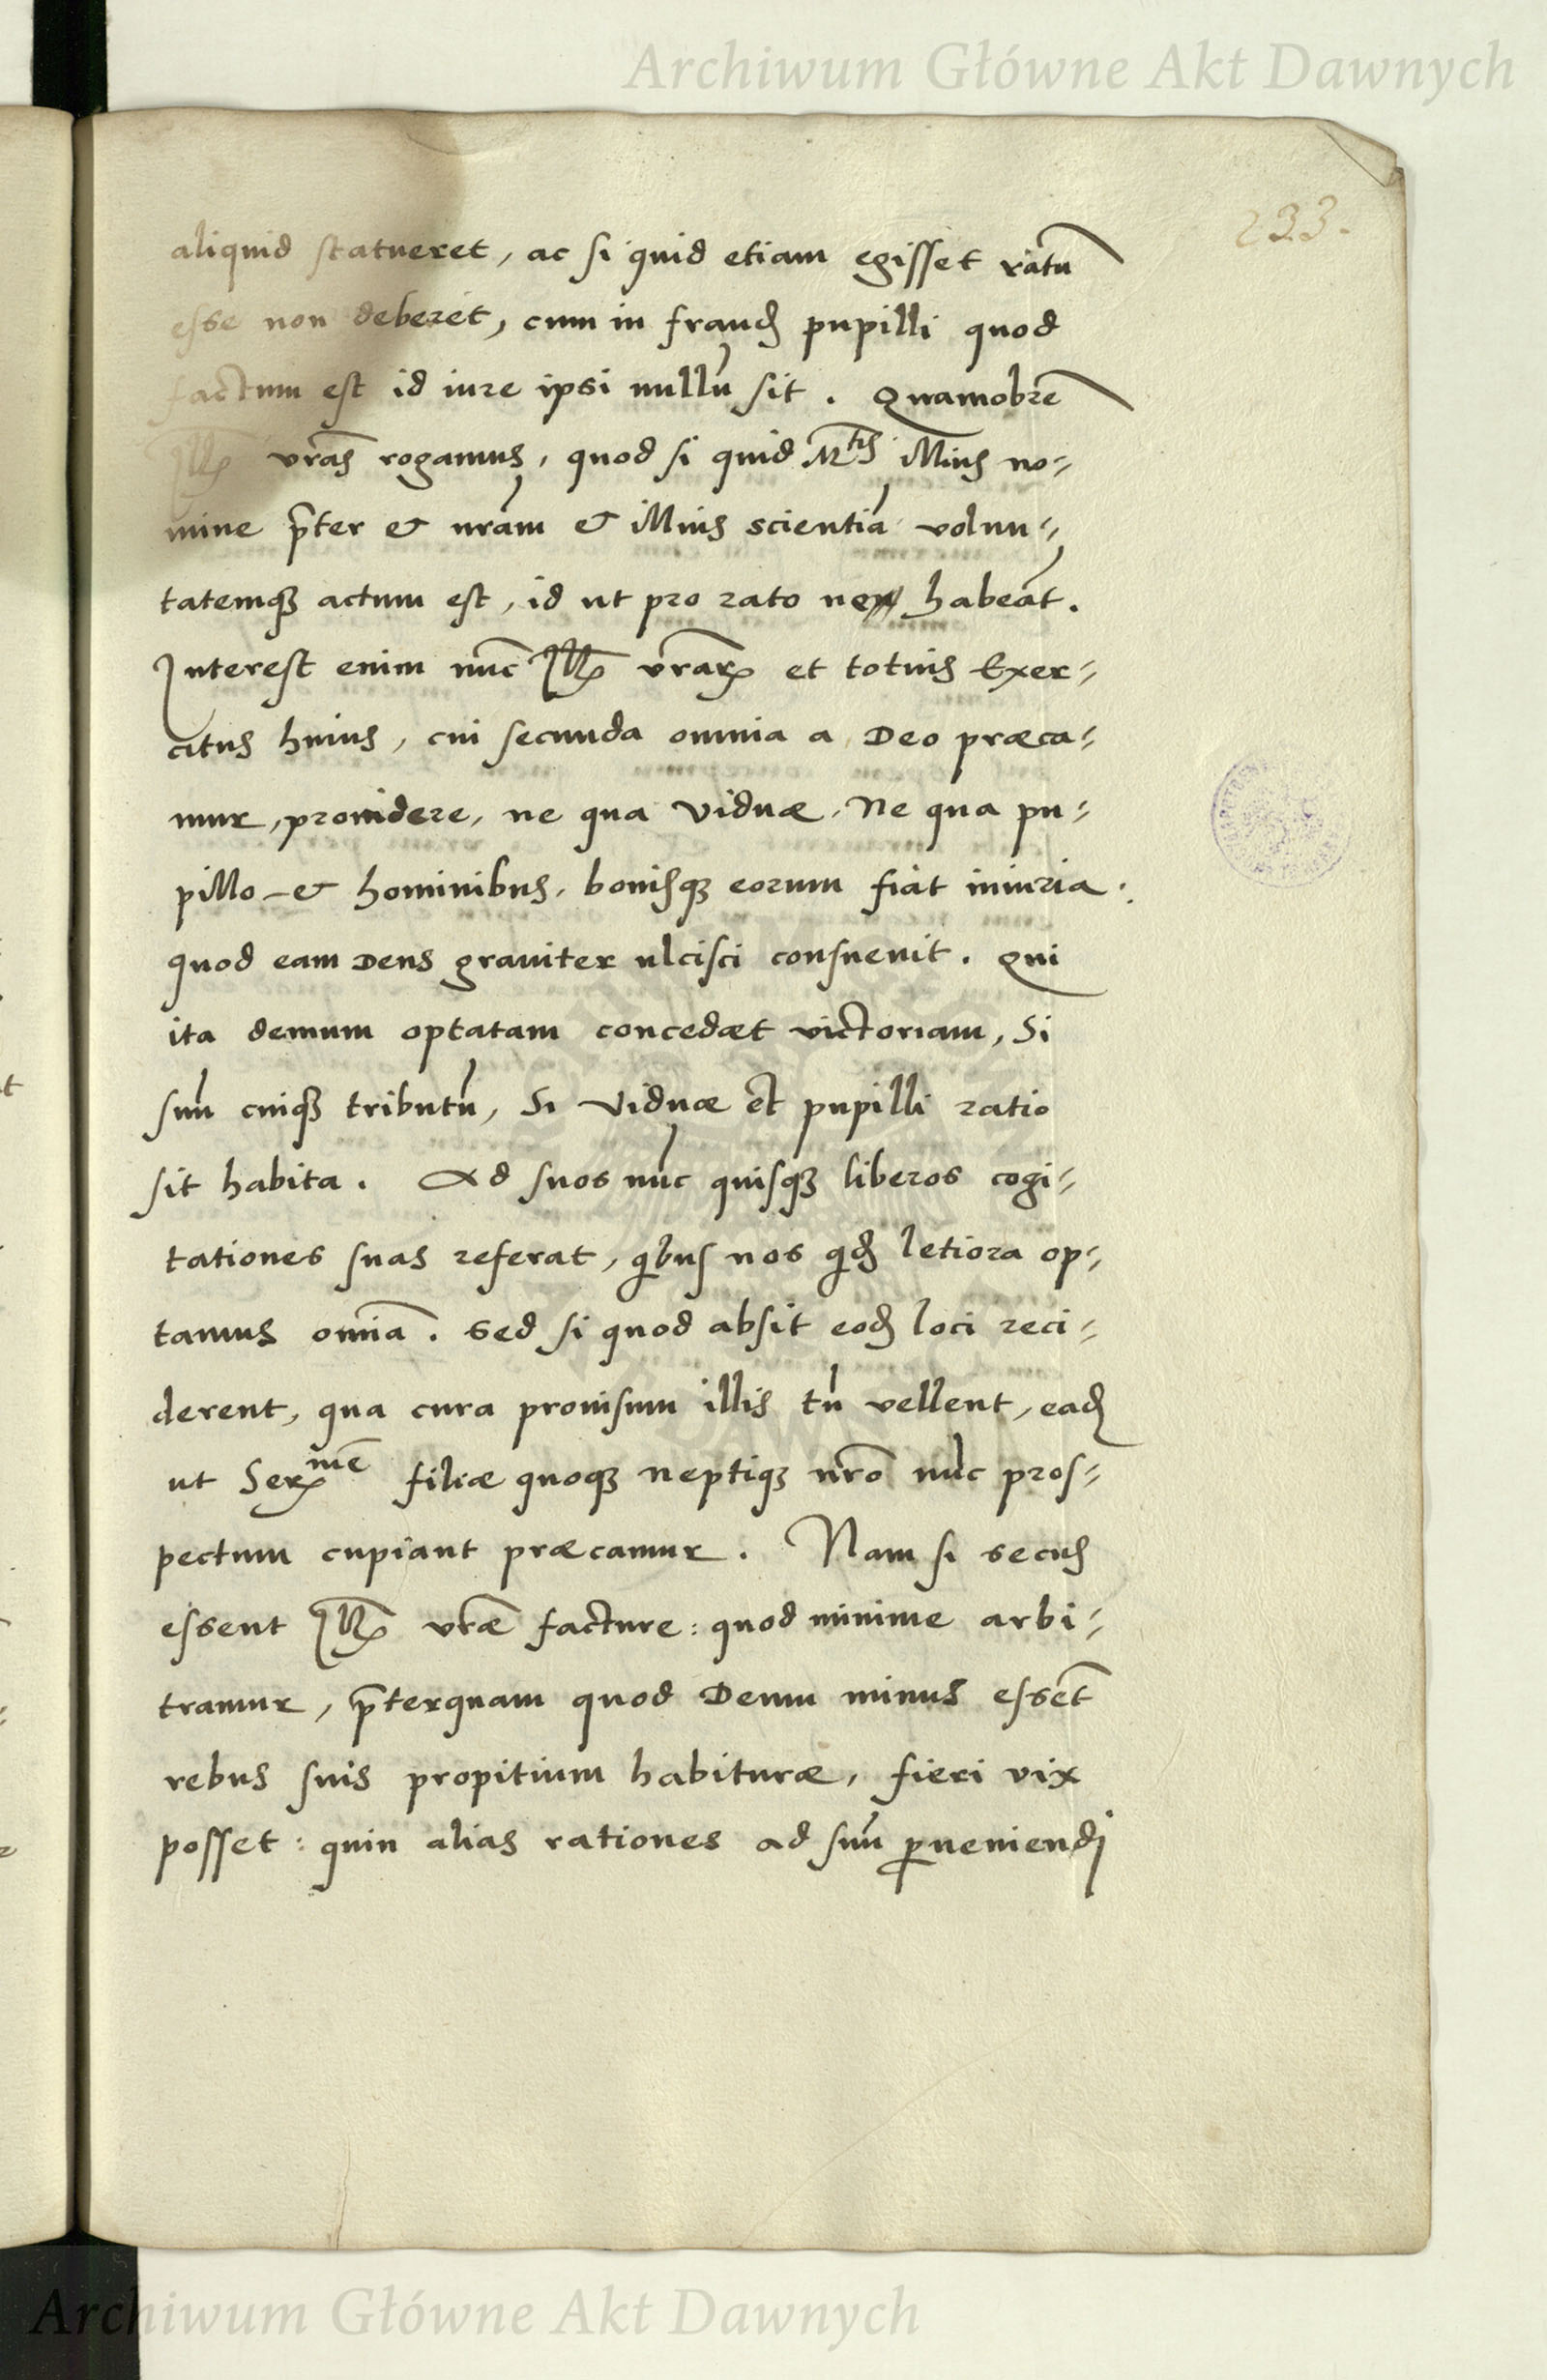 Archiwum Główne Akt Dawnych
233.
aliquid statueret, ac si quid etiam egisset ratū
esse non deberet, cum in fraudē pupilli quod
factum est id iure ipsi nullū sit. Quamobrē
Illꝝ vrās rogamus, quod si quid Mᵗⁱˢ illius no-
mine p̄ter & nrām & illius scientiā volun-
tatemqꝫ actum est, id ut pro rato non habeāt.
Interest enim nūc Illꝝ vrārꝝ et totius Exer-
citus huius, cui secunda omnia a Deo præca-
mur, prouidere, ne qua viduæ, ne qua pu-
pillo & hominibus, bonisqꝫ eorum fiat iniuria:
quod eam Deus grauiter ulcisci consueuit. Qui
ita demum optatam concedet victoriam, si
suū cuiqꝫ tributū, si viduæ et pupilli ratio
sit habita. Ad suos nūc quisqꝫ liberos cogi-
tationes suas referat, qībus nos qīdē letiora op-
tamus omīa. Sed si quod absit eodē loci reci-
derent, qua cura prouisum illis tū vellent, eadē
ut Serᵐᵉ filiæ quoqꝫ neptiqꝫ nrō nūc pros-
pectum cupiant præcamur. Nam si secus
essent Illꝝ vrǣ facture: quod minime arbi-
tramur, p̄terquam quod Deum minus essēt
rebus suis propitium habituræ, fieri vix
posset: quin alias rationes ad suū ꝑueniendi
Archiwum Główne Akt Dawnych